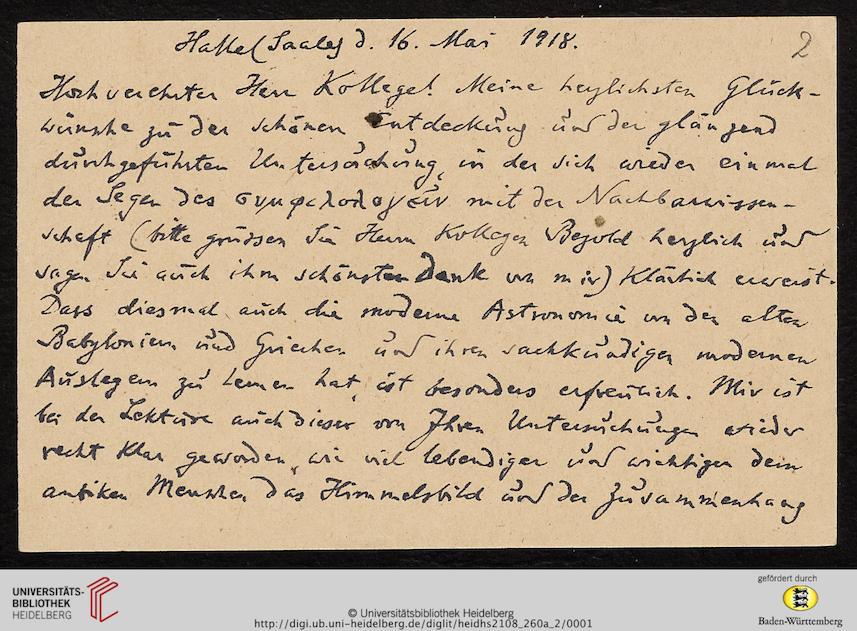 Halle (Saale) d. 16. Mai 1918.
2
Hochverehrter Herr Kollege! Meine herzlichsten Glück-
wünsche zu der schönen Entdeckung und der glänzend
durchgeführten Untersuchung, in der sich wieder einmal
der Segen des συμφιλολογεῖν mit der Nachbarwissen-
schaft (bitte grüssen Sie Herrn Kollegen Bezold herzlich und
sagen Sie auch ihm schönsten Dank von mir) klärlich erweist.
Dass diesmal auch die moderne Astronomie von den alten
Babyloniern und Griechen und ihren sachkundigen modernen
Auslegern zu lernen hat, ist besonders erfreulich. Mir ist
bei der Lektüre auch dieser von Ihren Untersuchungen wieder
recht klar geworden, wie viel lebendiger und wichtiger dem
antiken Menschen das Himmelsbild und der Zusammenhang
UNIVERSITÄTS-
BIBLIOTHEK
HEIDELBERG
© Universitätsbibliothek Heidelberg
http://digi.ub.uni-heidelberg.de/diglit/heidhs2108_260a_2/0001
gefördert durch
Baden-Württemberg